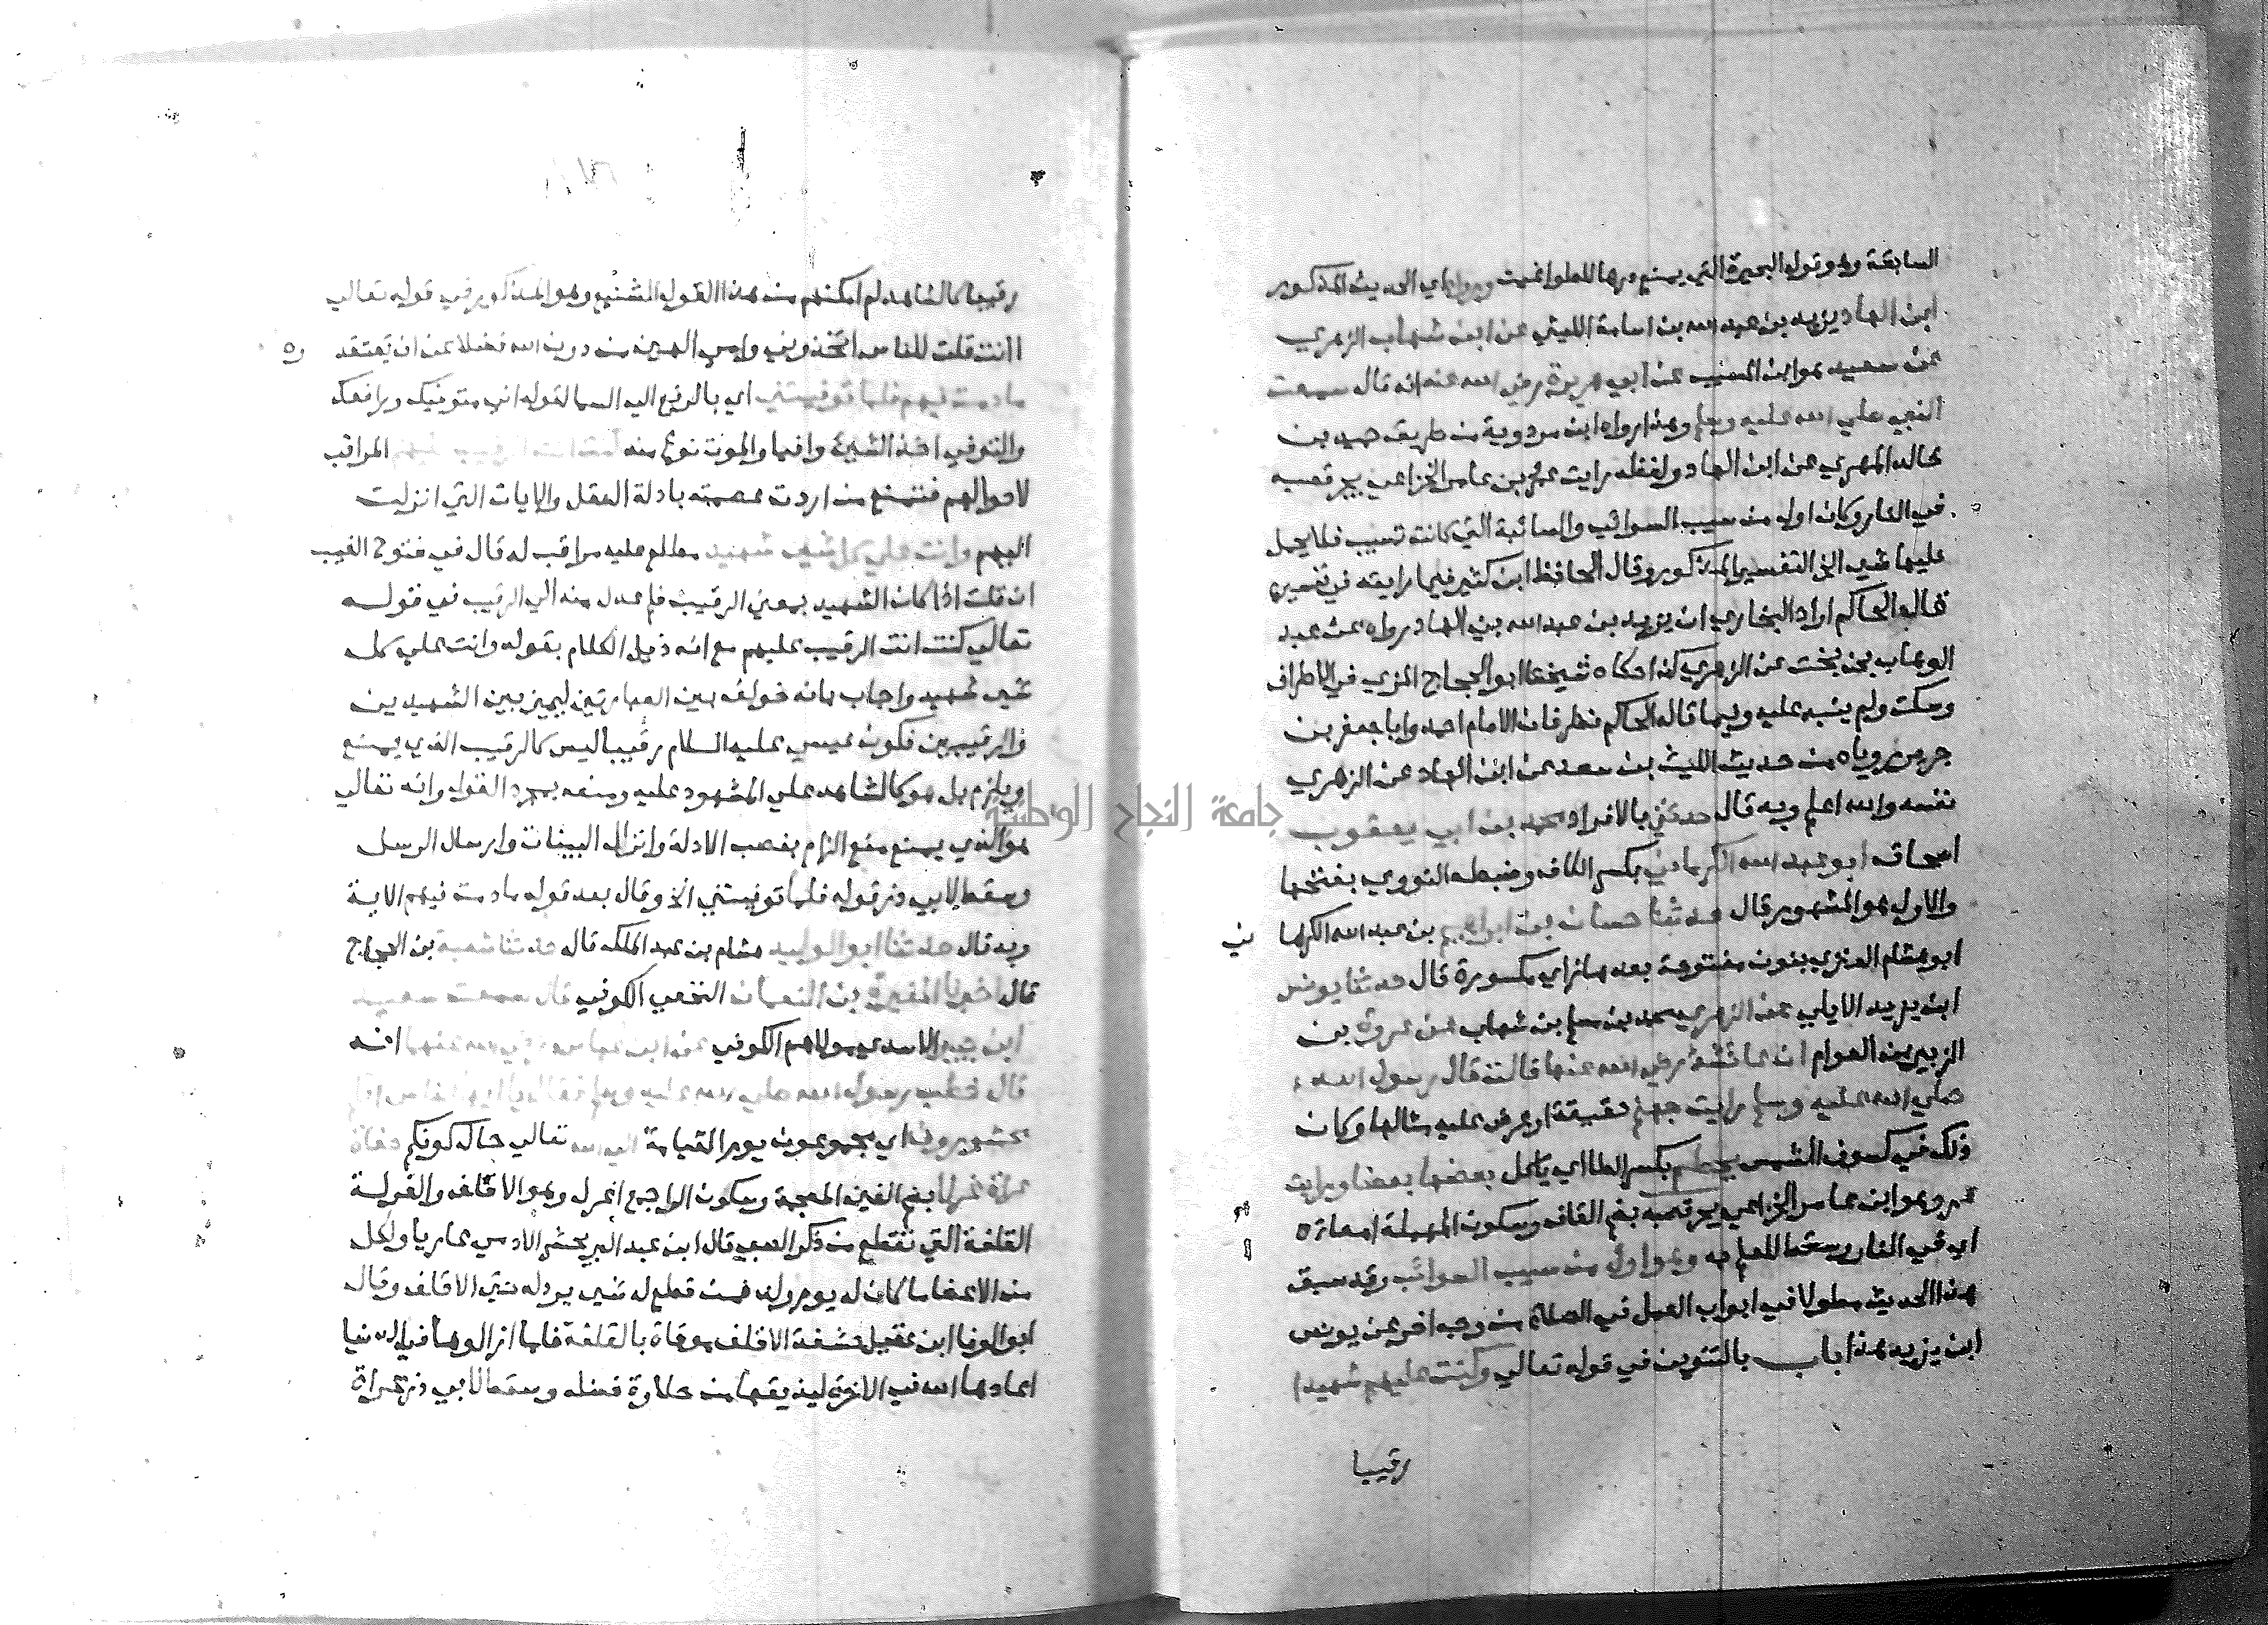 السابقة وهو قوله البحيرة التي يمنع درها للطواغيت ورواه اي الحديث المذكور
ابن الهاد يزيد بن عبد الله بن اسامة الليثي عن ابن شهاب الزهري
عن سعيد هو ابن المسيب عن ابي هريرة رضي الله عنه انه قال سمعت
النبي صلي الله عليه وسلم وهذا رواه ابن مردوية من طريق حميد بن
خالد المهري عن ابن الهاد ولفظه رايت عمرو بن عامر الخزاعي يجر قصبه
في النار وكان اول من سيب السوائب والسائبة التي كانت تسيب فلا يحمل
عليها شي الي التفسير المذكور وقال الحافظ ابن كثير فيما رايته في تفسيره
قال الحاكم اراد البخاري ان يزيد بن عبد الله بن الهاد رواه عن عبد
الوهاب بن بخت عن الزهري كذا حكاه شيخنا ابو الحجاج المزي في الاطراف
وسكت ولم ينبه عليه وفيما قاله الحاكم نظر فان الامام احمد وابا جعفر بن
جرير روياه من حديث الليث بن سعد عن ابن الهاد عن الزهري
نفسه والله اعلم وبه قال حدثني بالافراد محمد بن ابي يعقوب
اسحاق ابو عبد الله الكرماني بكسر الكاف وضبطه النووي بفتحها
والاول هو المشهور قال حدثنا حسان بن ابراهيم بن عبد الله الكرما ني
ابو هشام العنزي بنون مفتوحة بعدها زاي مكسورة قال حدثنا يونس
ابن يزيد الايلي عن الزهري محمد بن مسلم بن شهاب عن عروة بن
الزبير بن العوام ان عائشة رضي الله عنها قالت قال رسول الله
صلي الله عليه وسلم رايت جهنم حقيقة او عرض عليه مثالها وكان
ذلك في كسوف الشمس يحطم بكسر الطا اي ياكل بعضها بعضا ورايت
عمرو هو ابن عامر الخزاعي يجر قصبه بضم القاف وسكون المهملة امعاءه
اي في النار وسقط للعلم به وهو اول من سيب السوائب وقد سبق
هذا الحديث مطولا في ابواب العمل في الصلاة من وجه اخر عن يونس
ابن يزيد هذا باب بالتنوين في قوله تعالي وكنت عليهم شهيدا
رقيبا
رقيبا كالشاهد لم امكنهم من هذا القول الشنيع وهو المذكور في قوله تعالي
اانت قلت للناس اتخذوني وامي الهين من دون الله فضلا عن ان يعتقد وه
ما دمت فيهم فلما توفيتني اي بالرفع الي السما لقوله اني متوفيك ورافعك
والتوفي اخذ الشيء وافيا والموت نوع منه كنت انت الرقيب عليهم المراقب
لاحوالهم فتمنع من اردت عصمته بادلة العقل والايات التي انزلت
اليهم وانت علي كل شي شهيد مطلع عليه مراقب له قال في فتوح الغيب
ان قلت اذا كان الشهيد بمعني الرقيب فلم عدل منه الي الرقيب في قوله
تعالي كنت انت الرقيب عليهم مع انه ذيل الكلام بقوله وانت علي كل
شي شهيد واجاب بانه خولف بين العبارتين ليميز بين الشهيدين
والرقيبين فكون عيسي عليه السلام رقيبا ليس كالرقيب الذي يمنع
ويلزم بل هو كالشاهد علي المشهود عليه ومنعه بمجرد القول وانه تعالي
هو الذي يمنع منع الزام بنصب الادلة وانزال البينات وارسال الرسل
وسقط لابي ذر قوله فلما توفيتني الخ وقال بعد قوله ما دمت فيهم الاية
وبه قال حدثنا ابو الوليد هشام بن عبد الملك قال حدثنا شعبة بن الحجاج
قال اخبرنا المغيرة بن النعمان النخعي الكوفي قال سمعت سعيد
ابن جبير الاسدي مولاهم الكوفي عن ابن عباس رضي الله عنهما انه
قال خطب رسول الله صلي الله عليه وسلم فقال يا ايها الناس انكم
محشورون اي مجموعون يوم القيامة الي الله تعالي حال كونكم حفاة
عراة غرلا بضم الغين المعجمة وسكون الرا جمع اغرل وهو الاقلف والغرلة
القلفة التي تقطع من ذكر الصبي قال ابن عبد البر يحشر الادمي عاريا ولكل
من الاعضا ما كان له يوم ولد فمن قطع له شي يرد له حتي الاقلف وقال
ابو الوفا ابن عقيل حشفة الاقلف موقاة بالقلفة فلما ازالوها في الدنيا
اعادها الله في الاخرة ليذيقها من حلاوة فضله وسقط لابي ذر عراة
جامعة النجاح الوطنية